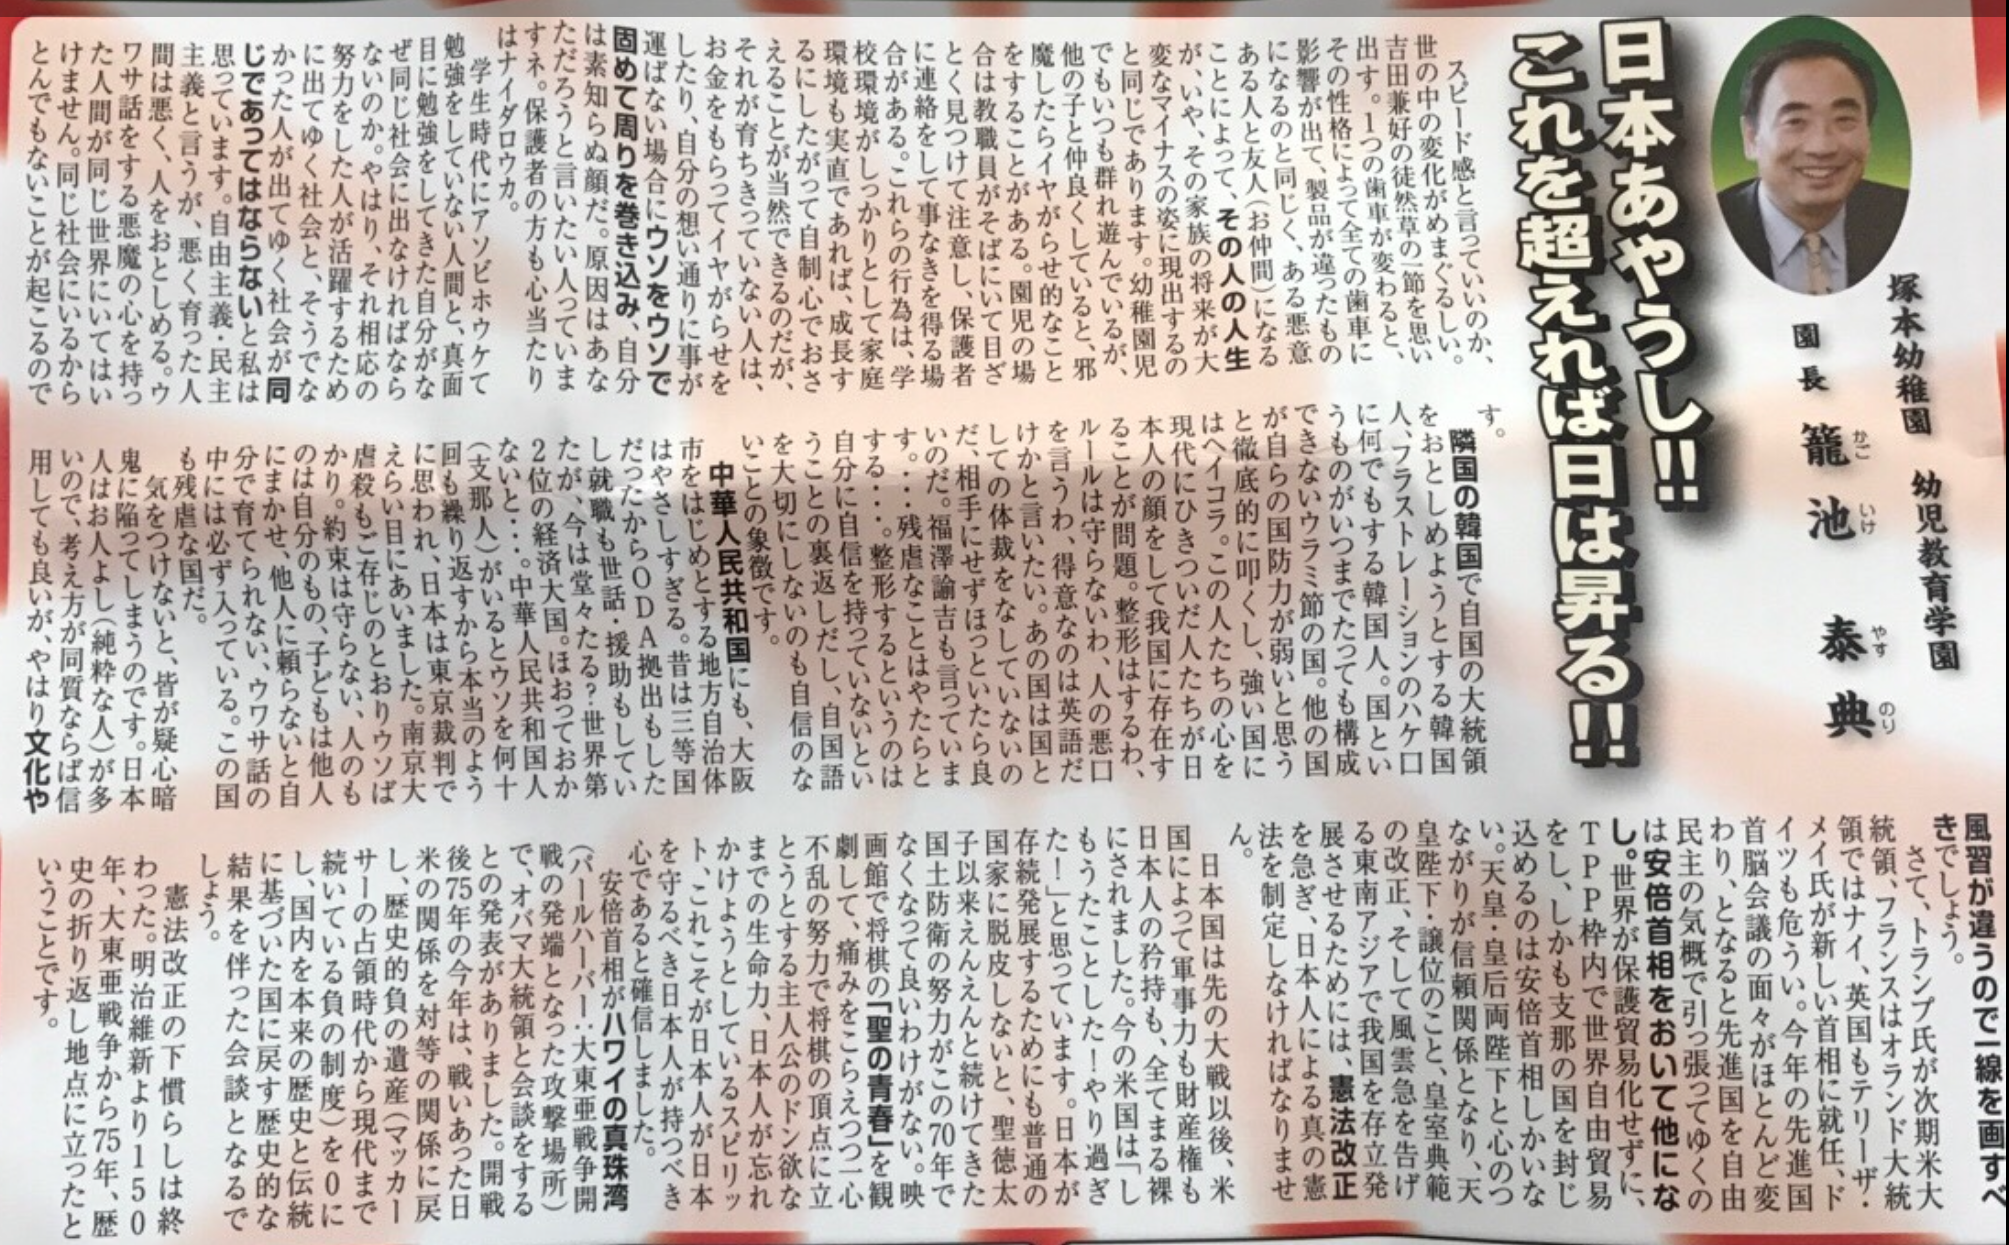 塚本幼稚園 幼児教育学園
園長 籠池 泰典
かご いけ やす のり
日本あやうし!!
これを超えれば日は昇る!!
スピード感と言っていいのか、
世の中の変化がめまぐるしい。
吉田兼好の徒然草の一節を思い
出す。1つの歯車が変わると、
その性格によって全ての歯車に
影響が出て、製品が違ったもの
になるのと同じく、ある悪意
ある人と友人(お仲間)になる
ことによって、その人の人生
が、いや、その家族の将来が大
変なマイナスの姿に現出するの
と同じであります。幼稚園児
でもいつも群れ遊んでいるが、
他の子と仲良くしていると、邪
魔したらイヤがらせ的なこと
をすることがある。園児の場
合は教職員がそばにいて目ざ
とく見つけて注意し、保護者
に連絡をして事なきを得る場
合がある。これらの行為は、学
校環境がしっかりとして家庭
環境も実直であれば、成長す
るにしたがって自制心でおさ
えることが当然できるのだが、
それが育ちきっていない人は、
お金をもらってイヤがらせを
したり、自分の想い通りに事が
運ばない場合にウソをウソで
固めて周りを巻き込み、自分
は素知らぬ顔だ。原因はあな
ただろうと言いたい人っていま
すネ。保護者の方も心当たり
はナイダロウカ。
学生時代にアソビホウケて
勉強をしていない人間と、真面
目に勉強をしてきた自分がな
ぜ同じ社会に出なければなら
ないのか。やはり、それ相応の
努力をした人が活躍するため
に出てゆく社会と、そうでな
かった人が出てゆく社会が同
じであってはならないと私は
思っています。自由主義・民主
主義と言うが、悪く育った人
間は悪く、人をおとしめる。ウ
ワサ話をする悪魔の心を持っ
た人間が同じ世界にいてはい
けません。同じ社会にいるから
とんでもないことが起こるので
す。
隣国の韓国で自国の大統領
をおとしめようとする韓国
人、フラストレーションのハケ口
に何でもする韓国人。国とい
うものがいつまでたっても構成
できないウラミ節の国。他の国
が自らの国防力が弱いと思う
と徹底的に叩くし、強い国に
はヘイコラ。この人たちの心を
現代にひきついだ人たちが日
本人の顔をして我国に存在す
ることが問題。整形はするわ、
ルールは守らないわ、人の悪口
を言うわ、得意なのは英語だ
けかと言いたい。あの国は国と
しての体裁をなしていないの
だ、相手にせずほっといたら良
いのだ。福澤諭吉も言っていま
す。・・残虐なことはやたらと
する・・・。整形するというのは
自分に自信を持っていないとい
うことの裏返しだし、自国語
を大切にしないのも自信のな
いことの象徴です。
中華人民共和国にも、大阪
市をはじめとする地方自治体
はやさしすぎる。昔は三等国
だったからODA拠出もした
し就職も世話・援助もしてい
たが、今は堂々たる?世界第
2位の経済大国。ほおっておか
ないと・・・。中華人民共和国人
(支那人)がいるとウソを何十
回も繰り返すから本当のよう
に思われ、日本は東京裁判で
えらい目にあいました。南京大
虐殺もご存じのとおりウソば
かり。約束は守らない、人のも
のは自分のもの、子どもは他人
にまかせ、他人に頼らないと自
分で育てられない、ウワサ話の
中には必ず入っている。この国
も残虐な国だ。
気をつけないと、皆が疑心暗
鬼に陥ってしまうのです。日本
人はお人よし(純粋な人)が多
いので、考え方が同質ならば信
用しても良いが、やはり文化や
風習が違うので一線を画すべ
きでしょう。
さて、トランプ氏が次期米大
統領、フランスはオランド大統
領ではナイ、英国もテリーザ・
メイ氏が新しい首相に就任、ド
イツも危うい。今年の先進国
首脳会議の面々がほとんど変
わり、となると先進国を自由
民主の気概で引っ張ってゆくの
は安倍首相をおいて他にな
し。世界が保護貿易化せずに、
TPP枠内で世界自由貿易
をし、しかも支那の国を封じ
込めるのは安倍首相しかいな
い。天皇・皇后両陛下と心のつ
ながりが信頼関係となり、天
皇陛下・譲位のこと、皇室典範
の改正、そして風雲急を告げ
る東南アジアで我国を存立発
展させるためには、憲法改正
を急ぎ、日本人による真の憲
法を制定しなければなりませ
ん。
日本国は先の大戦以後、米
国によって軍事力も財産権も
日本人の矜持も、全てまる裸
にされました。今の米国は「し
もうたことした!やり過ぎ
た!」と思っています。日本が
存続発展するためにも普通の
国家に脱皮しないと、聖徳太
子以来えんえんと続けてきた
国土防衛の努力がこの70年で
なくなって良いわけがない。映
画館で将棋の「聖の青春」を観
劇して、痛みをこらえつつ一心
不乱の努力で将棋の頂点に立
とうとする主人公のドン欲な
までの生命力、日本人が忘れ
かけようとしているスピリッ
ト、これこそが日本人が日本
を守るべき日本人が持つべき
心であると確信しました。
安倍首相がハワイの真珠湾
(パールハーバー:大東亜戦争開
戦の発端となった攻撃場所)
で、オバマ大統領と会談をする
との発表がありました。開戦
後75年の今年は、戦いあった日
米の関係を対等の関係に戻
し、歴史的負の遺産(マッカー
サーの占領時代から現代まで
続いている負の制度)を0に
し、国内を本来の歴史と伝統
に基づいた国に戻す歴史的な
結果を伴った会談となるで
しょう。
憲法改正の下慣らしは終
わった。明治維新より150
年、大東亜戦争から75年、歴
史の折り返し地点に立ったと
いうことです。